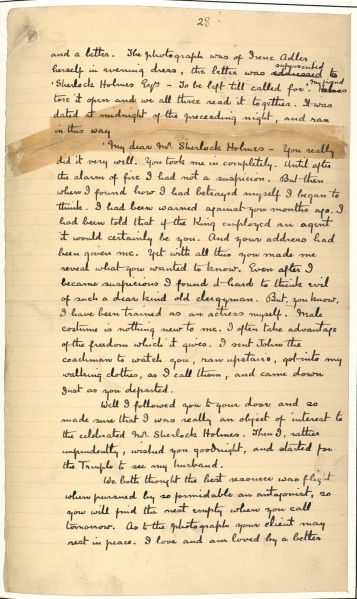 28
and a letter. The photograph was of Irene Adler
herself in evening dress, the letter was addressed superscribed to
'Sherlock Holmes Esqre – To be left till called for'. Holmes My friend
tore it open and we all three read it together. It was
dated at midnight of the preceeding night, and ran
in this way
'My dear Mr Sherlock Holmes – You really
did it very well. You took me in completely. Until after
the alarm of fire I had not a suspicion. But then
when I found how I had betrayed myself I began to
think. I had been warned against you months ago. I
had been told that if the King employed an agent
it would certainly be you. And your address had
been given me. Yet with all this you made me
reveal what you wanted to know. Even after I
became suspicious I found it hard to think evil
of such a dear kind old clergyman. But, you know,
I have been trained as an actress myself. Male
costume is nothing new to me. I often take advantage
of the freedom which it gives. I sent John the
coachman to watch you, ran upstairs, got into my
walking clothes, as I call them, and came down
Just as you departed.
Well I followed you to your door and so
made sure that I was really an object of interest to
the celebrated Mr Sherlock Holmes. Then I, rather
imprudently, wished you goodnight, and started for
the Temple to see my husband.
We both thought the best resource was flight
when pursued by so formidable an antagonist, so
you will find the nest empty when you call
tomorrow. As to the photograph your client may
rest in peace. I love and am loved by a better